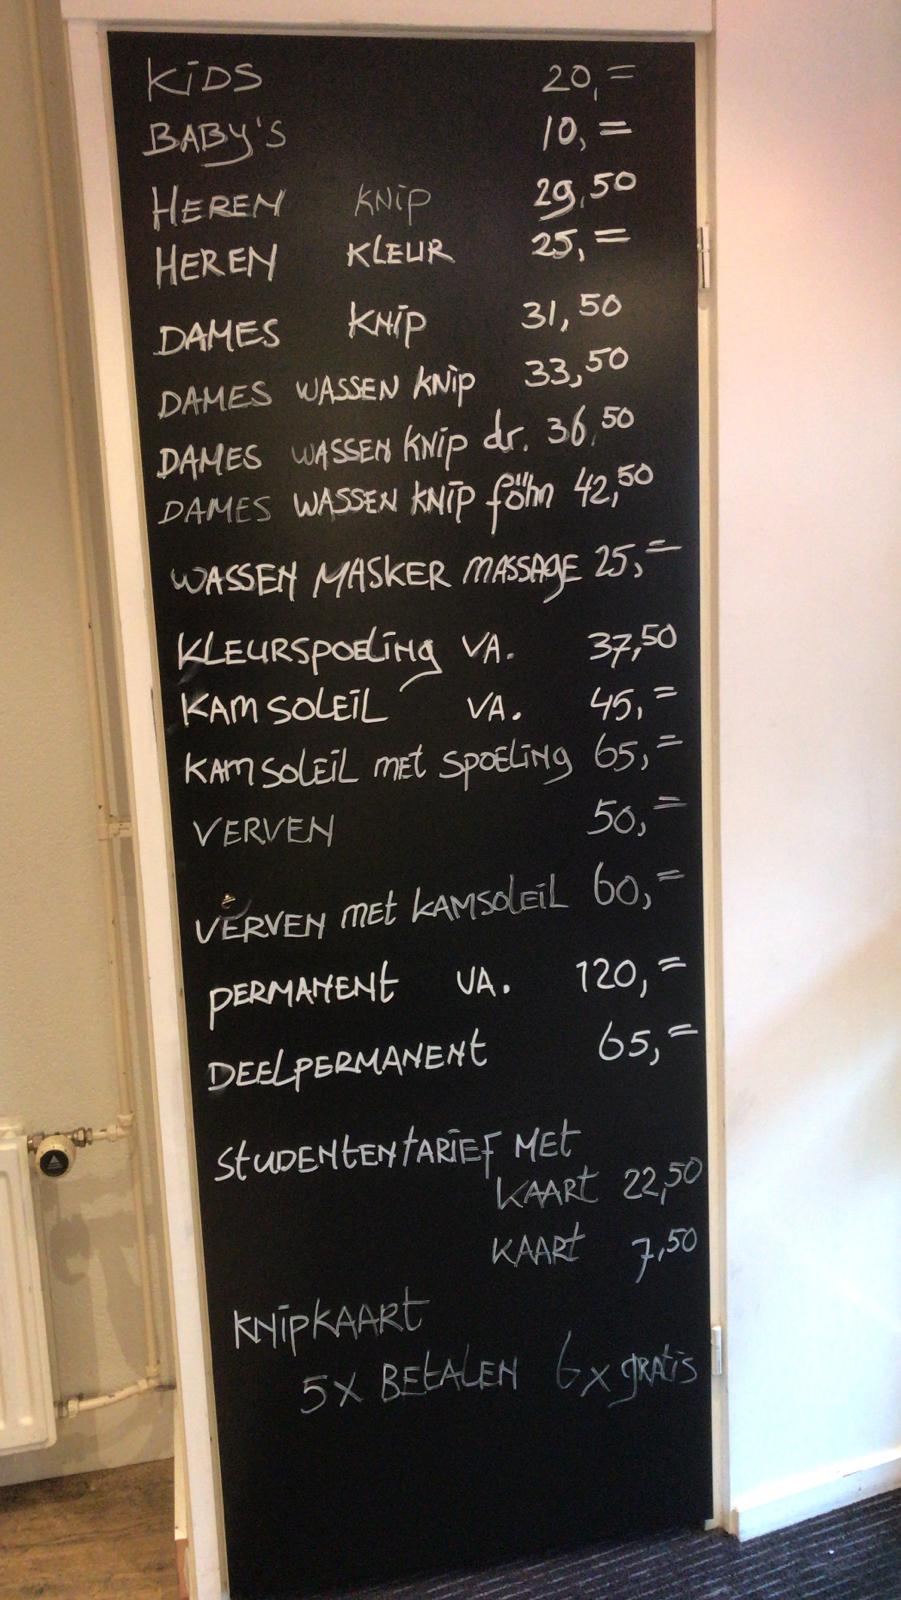 KiDS 20,=
BABY'S 10,=
HEREN KNiP 29,50
HEREN KLEUR 25,=
DAMES KNiP 31,50
DAMES WASSEN KNiP 33,50
DAMES WASSEN KNiP dr. 36,50
DAMES WASSEN KNiP föhn 42,50
WASSEN MASKER MASSAGE 25,=
KLEURSPOELiNg VA. 37,50
KAMSOLEiL VA. 45,=
KAMSOLEiL MEt SPOELiNg 65,=
VERVEN 50,=
VERVEN MEt KAMSOLEiL 60,=
PERMANENt VA. 120,=
DEELPERMANENt 65,=
StUDENtENtARiEF MEt
KAARt 22,50
KAARt 7,50
KNiPKAARt
5X BEtALEN 6X gRAtiS